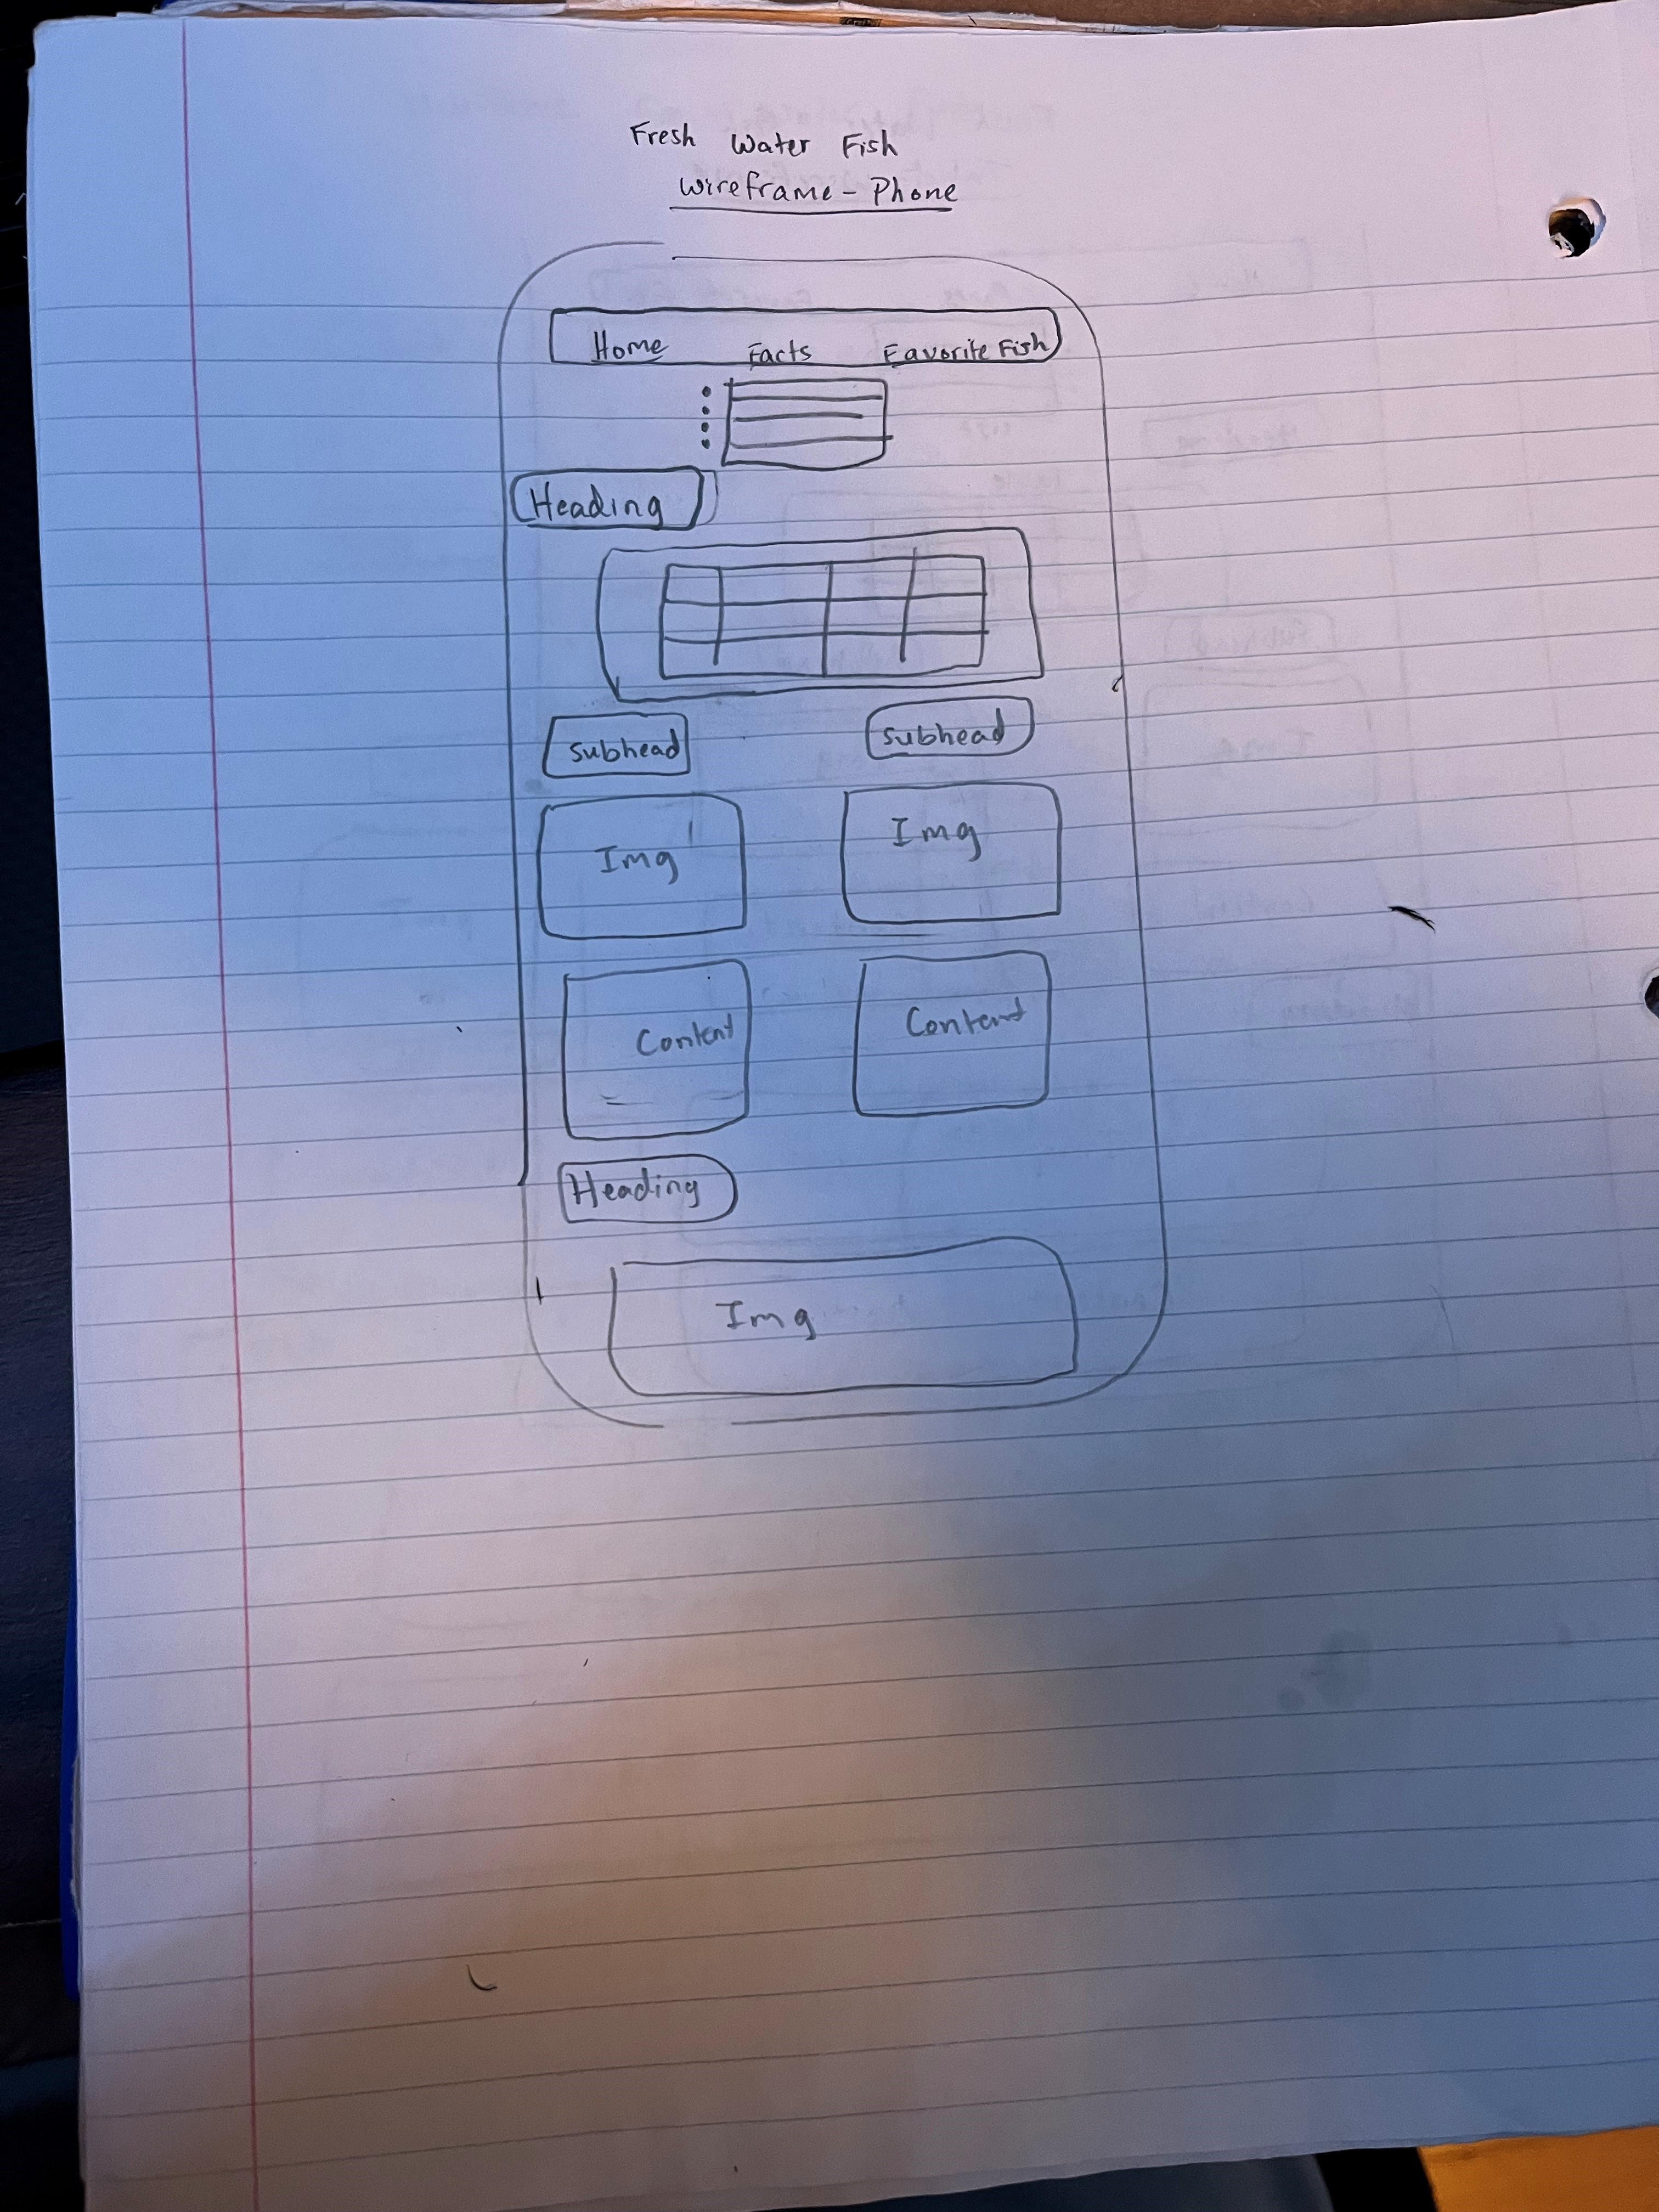 Fresh Water Fish
Wireframe - Phone
Home Facts Favorite Fish
Heading
Subhead Subhead
Img Img
Content Content
Heading
Img